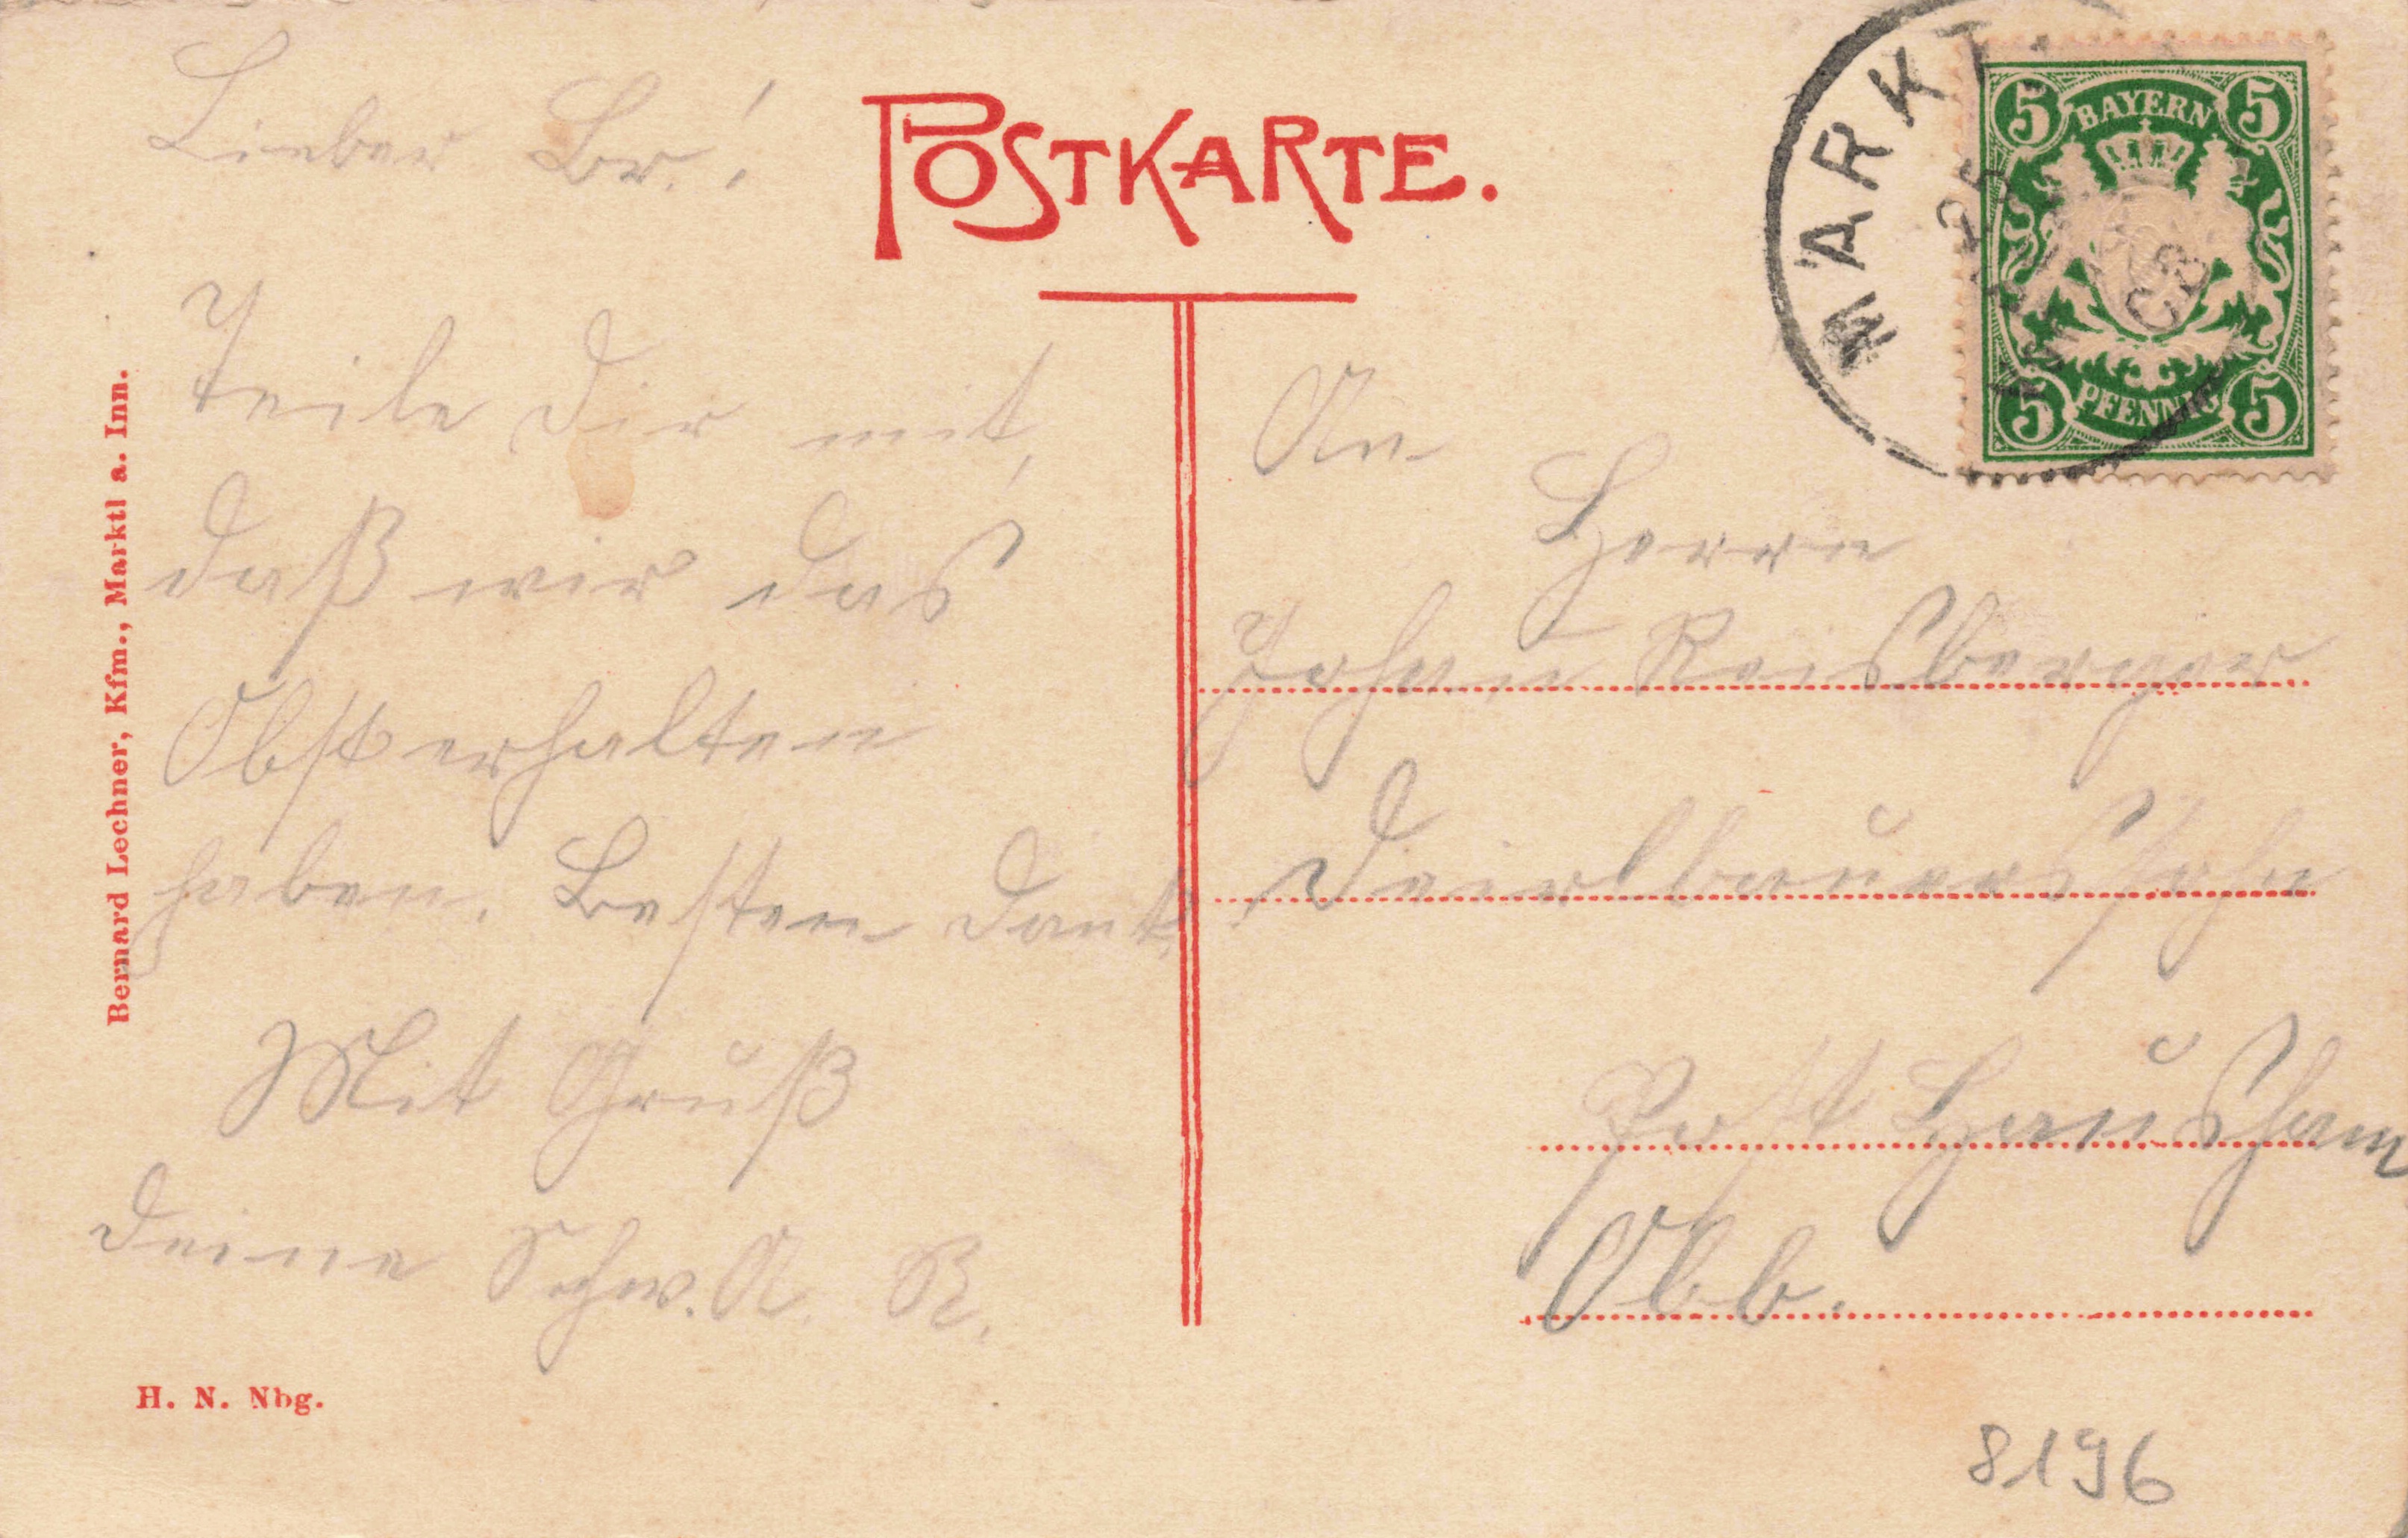 POSTKARTE.
Lieber Br.!
Teile Dir mit,
daß wir das
Obst erhalten
haben. Besten Dank.
Mit Gruß
Deine Schw. A. R.
Bernard Lechner, Kfm., Marktl a. Inn.
H. N. Nbg.
MARKT
BAYERN
5 5
5 5
PFENNIG
An
Herrn
Johann Reisberger
Deierlbauerssohn
Post Hausham
Obb.
8196